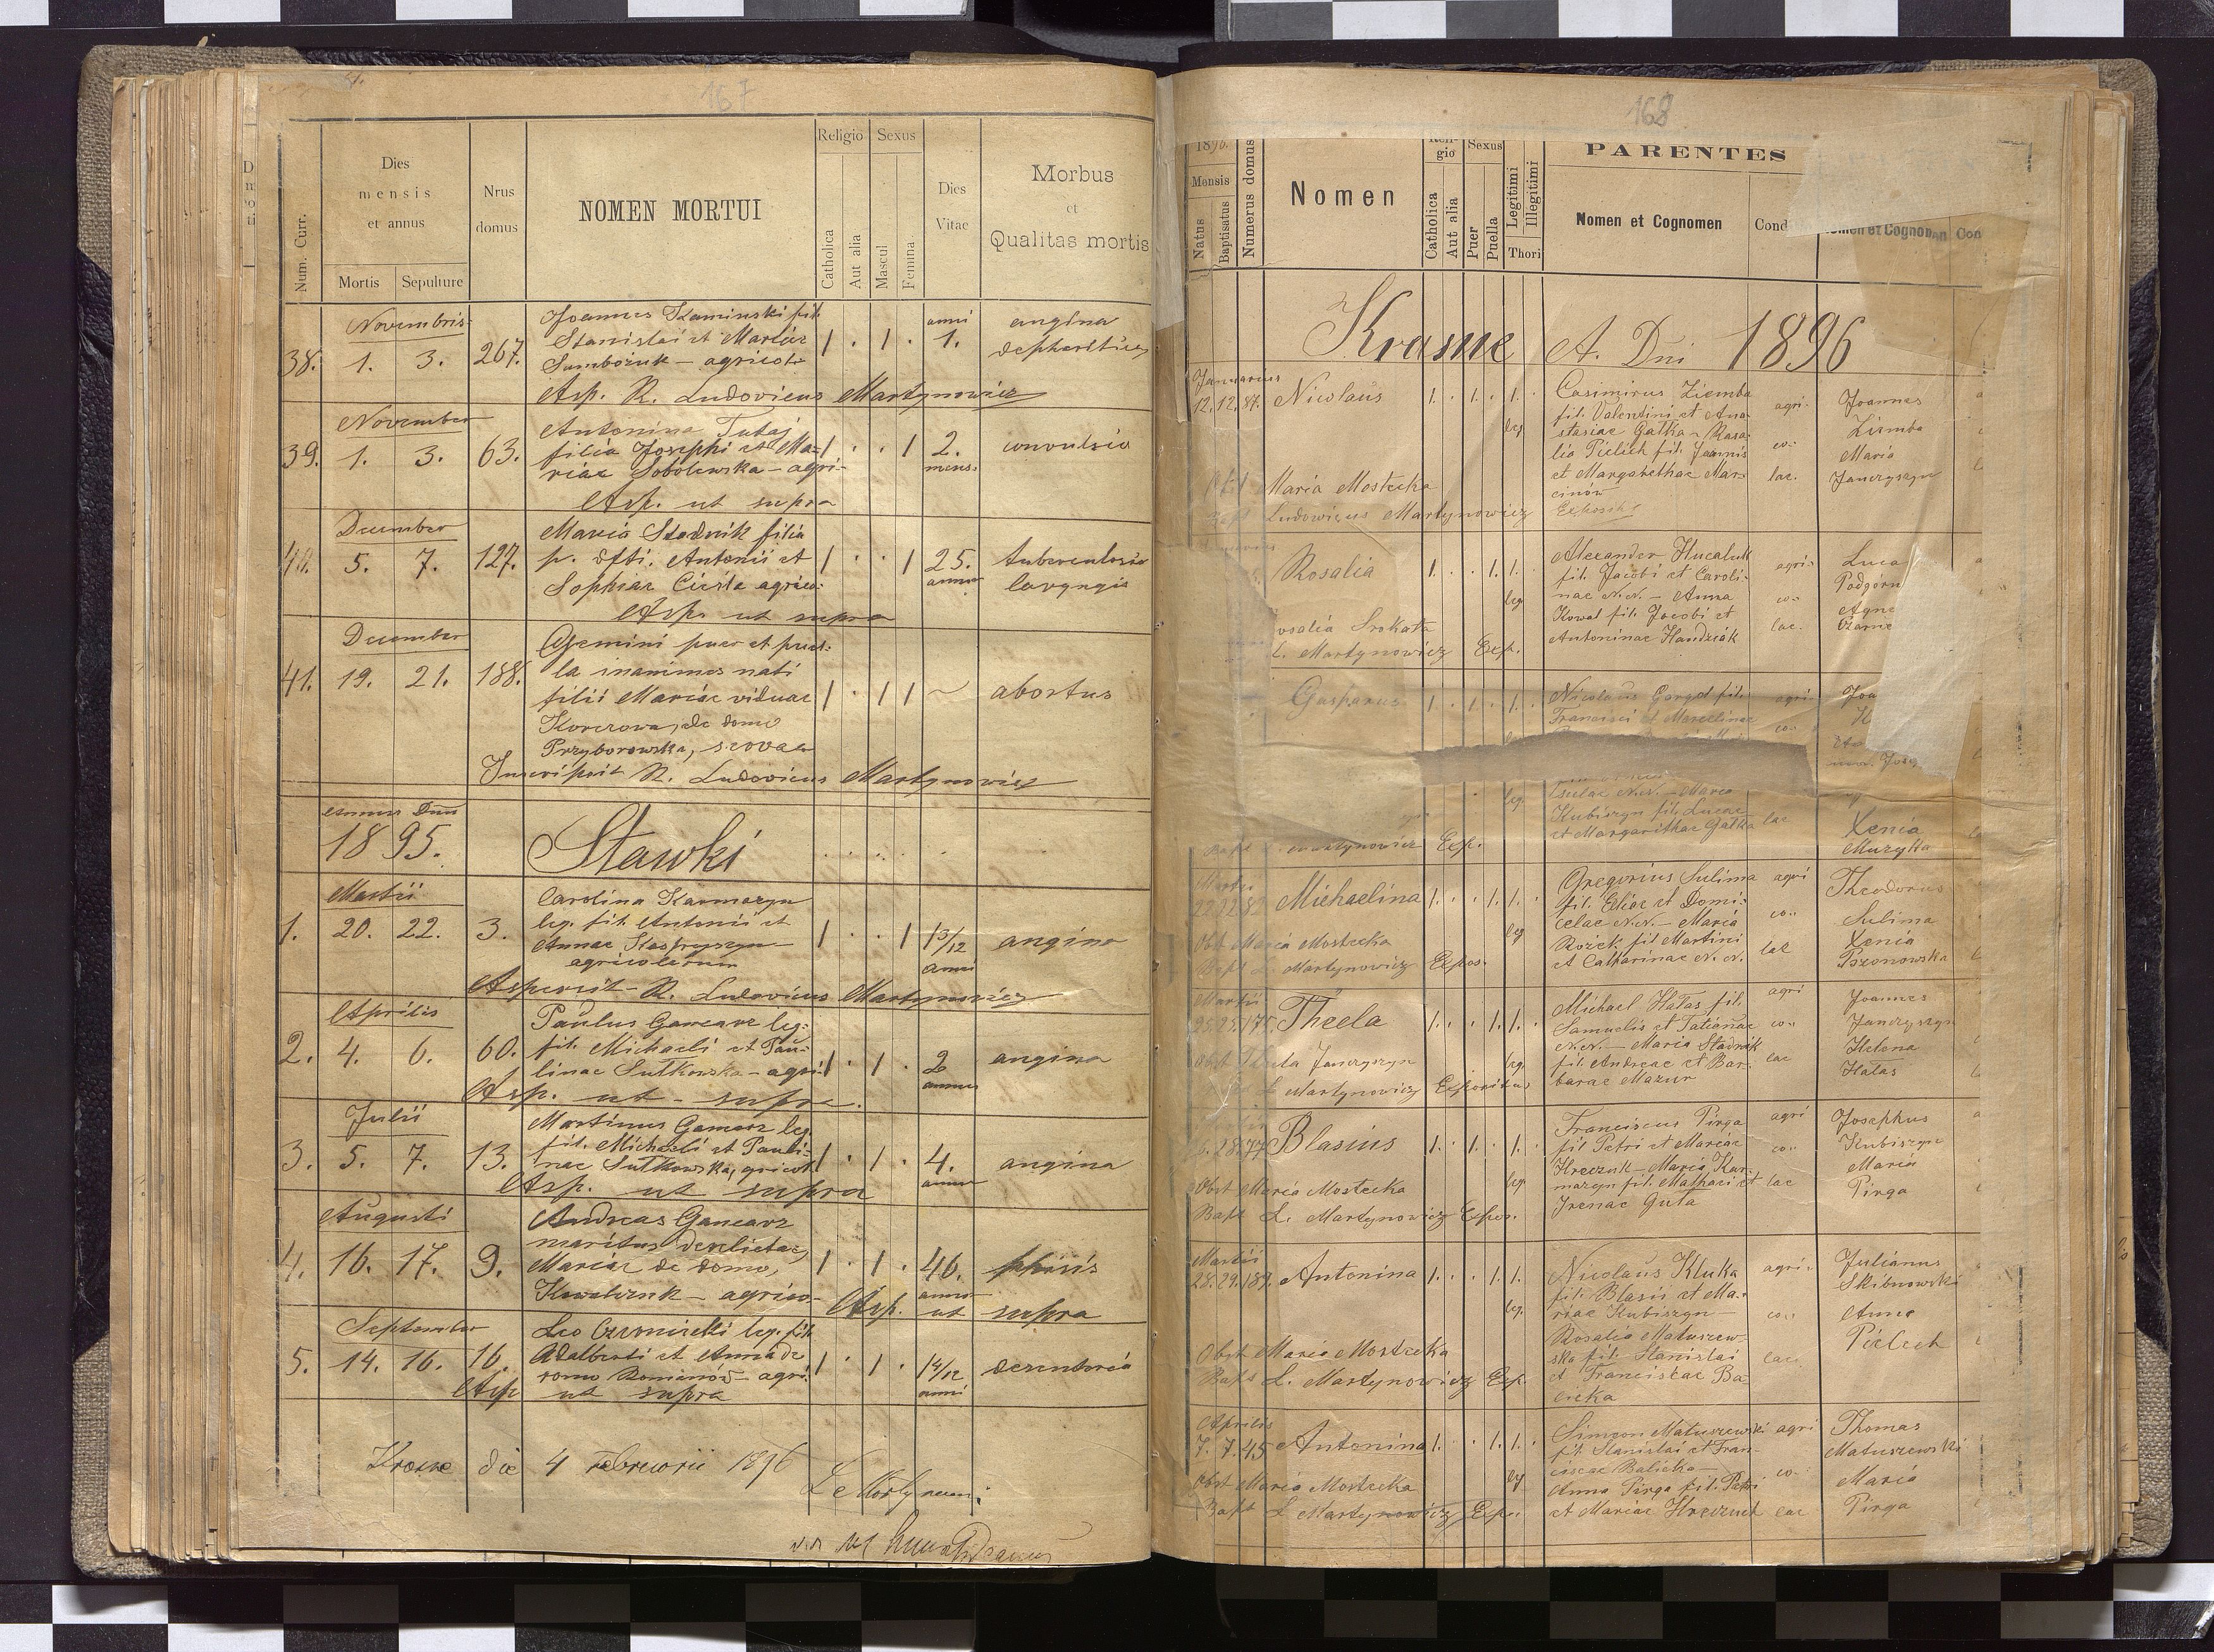 167
Num. Curr.
Dies mensis et annus
Mortis Sepulture
Nrus domus
NOMEN MORTUI
Religio
Catholica
Aut alia
Sexus
Mascul
Femina
Dies Vitae
Morbus et Qualitas mortis
Novembris
38. 1. 3. 267.
Joannes Kaminski fil.
Stanislai et Mariae
agricol
1 . 1 .
anni
1.
angina
Asp. R. Ludovicus Martynowicz
November
39. 1. 3. 63.
Antonina Tutaj
filia Josephi et Ma-
riae Sobolewska - agri-
1 . . 1
2.
mens.
convulsio
Asp. ut supra
December
40. 5. 7. 127.
Maria Stadnik filia
p. dfti. Antonii et
Sophiae agrico:
1 . . 1
25.
annor
laryngis
Asp. ut supra
December
41. 19. 21. 188.
Gemini puer et puel-
la inanimes nati
filii Mariae viduae
Korczowa, de domo
Przyborowska,
1 . 1 1
abortus
Inscripsit R. Ludovicus Martynowicz
Annus Dni
1895.
Stawki
Martii
1. 20. 22. 3.
Carolina Karmazyn
leg. fil. Antonii et
Annae
agricolarum
1 . . 1
13/12
anni
angina
Asperxit R. Ludovicus Martynowicz
Aprilis
2. 4. 6. 60.
Paulus Gancarz leg.
fil. Michaeli et Pau-
linae Sutkowska - agri:
1 . 1 .
2
annor
angina
Asp. ut - supra.
Julii
3. 5. 7. 13.
Martinus Gancarz leg.
fil. Michaeli et Pauli-
nae Sutkowska, agricol
1 . 1 .
4.
annor
angina
Asp. ut supra
Augusti
4. 16. 17. 9.
Andreas Gancarz
maritus derelictae,
Mariae de domo,
Kowalczuk - agrico-
1 . 1 .
46.
annor
Asp. ut supra
September
5. 14. 16. 16.
Leo leg. fil.
Adalberti et Anna de
domo Romanów - agri.
1 . 1 .
14/12
anni
desenteria
Asp ut supra
Krasne die 4 Februarii 1896
168
1896.
Mensis
Natus
Baptisatus
Numerus domus
Nomen
Religio
Catholica
Aut alia
Sexus
Puer
Puella
Legitimi
Illegitimi
Thori
PARENTES
Nomen et Cognomen
Cond
Nomen et Cognomen
Con
Krasne A. Dni 1896
Januarius
12. 12. 87. Nicolaus
1. . 1. . 1. .
leg
Casimirus Ziemba
fil. Valentini et Ana-
stasiae Gałka - Rosa-
lia Pielech fil. Joannis
et Margarethae Mar-
cinów
agri-
co-
lae.
Joannes
Ziemba
Maria
Janczyszyn
Maria Mostecka
Bapt Ludovicus Martynowicz
Rosalia
1. . . 1. 1.
leg
Alexander Hucaluk
fil. Jacobi et Caroli-
nae N.N. - Anna
Kowal fil. Jacobi et
Antoninae Handziak
agri-
co-
lae.
Luca
Podgórn
Agne
osalia Srokata
L. Martynowicz Exp.
Gasparus
1 . 1 . 1.
Nicolaus Gargol fil.
Francisci et Marcelinae
agri-
co-
Joa
leg.
N.N. - Maria
Kubiszyn fil. Lucae
et Margarithae Gałka
lae
Xenia
Muzyka
Bapt Martynowicz Exp.
Martii
22. 22. 82 Michaelina
1. . . 1. 1. .
leg
Gregorius Sulima
fil. Eliae et Domi-
celae N.N. - Maria
Rożek fil Martini
et Catharinae N. N.
agri
co-
lae
Theodorus
Sulima
Xenia
Obst Maria Mostecka
Bapt L. Martynowicz Expos.
Martii
25. 25. 175. Thecla
1. . . 1. 1. .
leg.
Michael Hałas fil.
Samuelis et Tatianae
N.N. - Maria Stadnik
fil. Andreae et Bar-
barae Mazur
agri
co-
lae
Joannes
Janczyszyn
Helena
Hałas
Obst Janczyszyn
L Martynowicz Expositus
28. 77 Blasius
1. . 1. . 1. .
leg
Franciscus Pirga
fil Petri et Mariae
Hreczuk - Maria Kar-
mazyn fil. Mathaei et
Irenae Guta
agri
co-
lae
Josephus
Kubiszyn
Maria
Pirga
Obst Maria Mostecka
Bapt L. Martynowicz Expos.
Martii
28. 29. 189. Antonina
1. . . 1. 1.
leg.
Nicolaus Kluka
fil. Blasii et Ma-
riae Kubiszyn -
Rosalia Matuszew-
ska fil. Stanislai
et Franciscae Ba-
licka
agri-
co-
lae.
Julianus
Skibnowski
Anna
Pielech
Obst Maria Mostecka
Bapt L. Martynowicz Exp.
Aprilis
7. 7. 45 Antonina
1. . . 1. 1. .
leg
Simeon Matuszewski
fil. Stanislai et Fran-
ciscae Balicka -
Anna Pirga fil. Petri
et Mariae Hreczuch
agri
co-
lae
Thomas
Matuszewski
Maria
Pirga
Obst Maria Mostecka
Bapt L Martynowicz Expo.